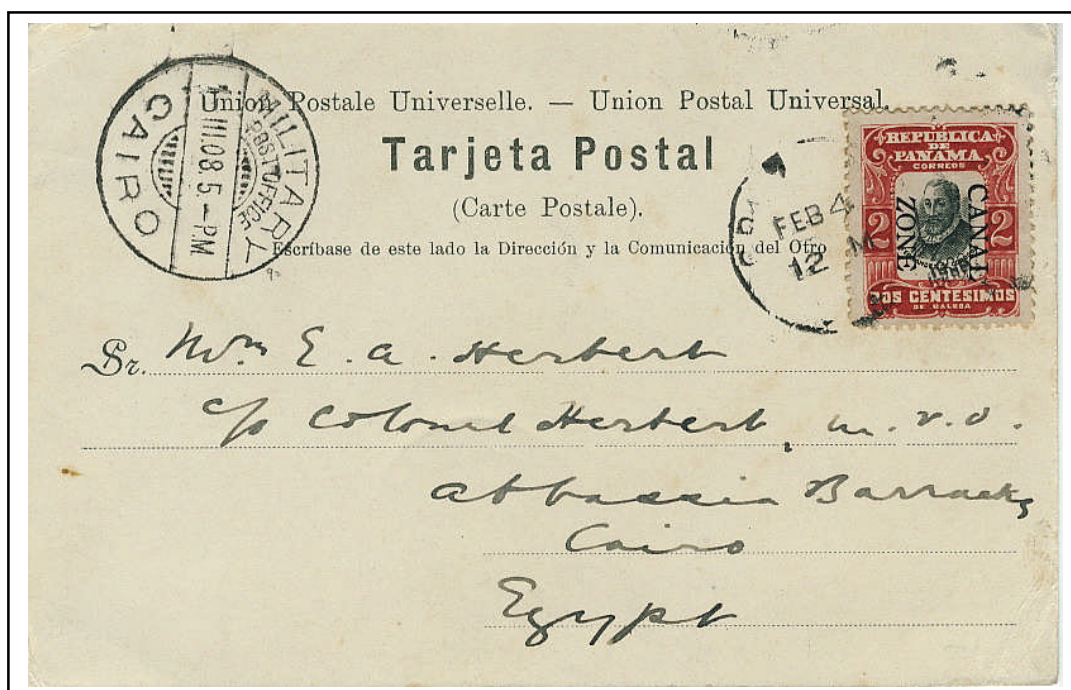 Union Postale Universelle. — Union Postal Universal.
Tarjeta Postal
(Carte Postale).
Escríbase de este lado la Dirección y la Comunicación del Otro
MILITARY
POST OFFICE
III.08.5.-PM
CAIRO
FEB 4
12 M
REPUBLICA
DE
PANAMA
CORREOS
CANAL
ZONE
2 2
DOS CENTESIMOS
DE BALBOA
Sr. Mrs E. A. Herbert
c/o Colonel Herbert, m.v.o.
Abbassia Barracks
Cairo
Egypt